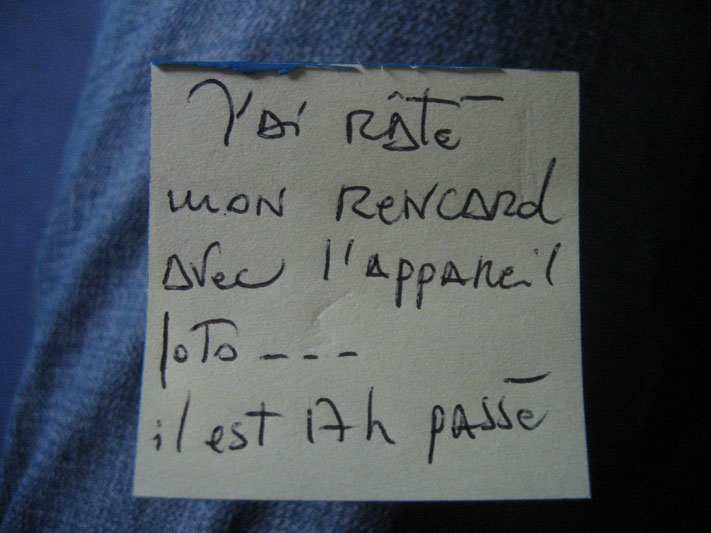 J'ai RÂTé
mon RENCARd
AVec l'APPAReil
foTo ---
il est 17h PASSé